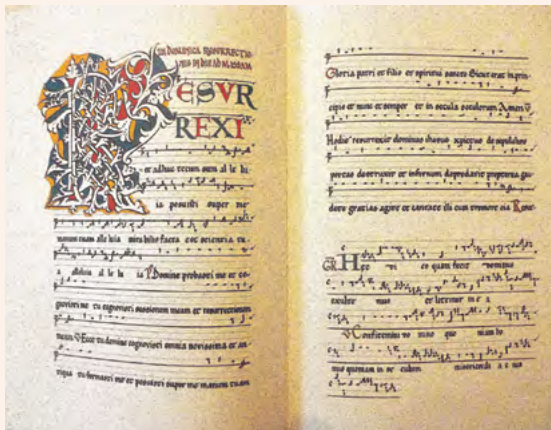 IN DOMINICA RESURRECTIO
AD MISSAM
RESVR
REXI
et adhuc tecum sum al le lu
ia posuisti super me
manum tuam alle luia mirabilis facta est scientia tu
a alleluia al le lu ia Domine probasti me et co
gnovisti me tu cognovisti sessionem meam et resurrectionem
meam V Ecce tu domine cognovisti omnia novissima et an
tiqua tu formasti me et posuisti super me manum tuam
Gloria patri et filio et spiritui sancto Sicut erat in prin
cipio et nunc et semper et in secula seculorum Amen V
Hodie resurrexit dominus de sepulchro
portas destruxit et infernum propterea gau
dete gratias agite et cantate illi cum tremore eia Resu
GR. Hec di es quam fecit dominus
exulte mus et letemur in e a
V Confitemini do mino quo niam bo
nus quoniam in se culum misericordi a e ius